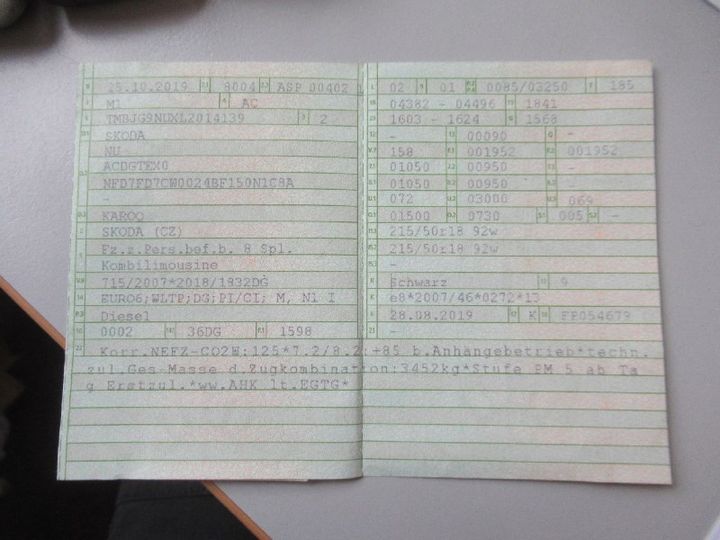 25.10.2019 8004 ASP 00402 1
M1 AC
TMBJG9NUXL2014139 2
SKODA
NU
ACDGTEX0
NFD7FD7CW0024BF150N1C8A
-
KAROQ
SKODA (CZ)
Fz.z.Pers.bef.b. 8 Spl.
Kombilimousine
715/2007*2018/1832DG
EURO6;WLTP;DG;PI/CI; M, N1 I
Diesel
0002 36DG 1598
Korr.NEFZ-CO2W:125*7.2/8.2:+85 b.Anhängebetrieb*techn.
zul.Ges-Masse d.Zugkombination:3452kg*Stufe PM 5 ab Ta
g Erstzul.*ww.AHK lt.EGTG*
02 01 0085/03250 185
04382 - 04496 1841
1603 - 1624 1568
- 00090 -
158 001952 001952
01050 00950 -
01050 00950 -
072 03000 069
01500 0730 005 -
215/50r18 92w
215/50r18 92w
-
Schwarz 9
e8*2007/46*0272*13
28.08.2019 K FP054679
-